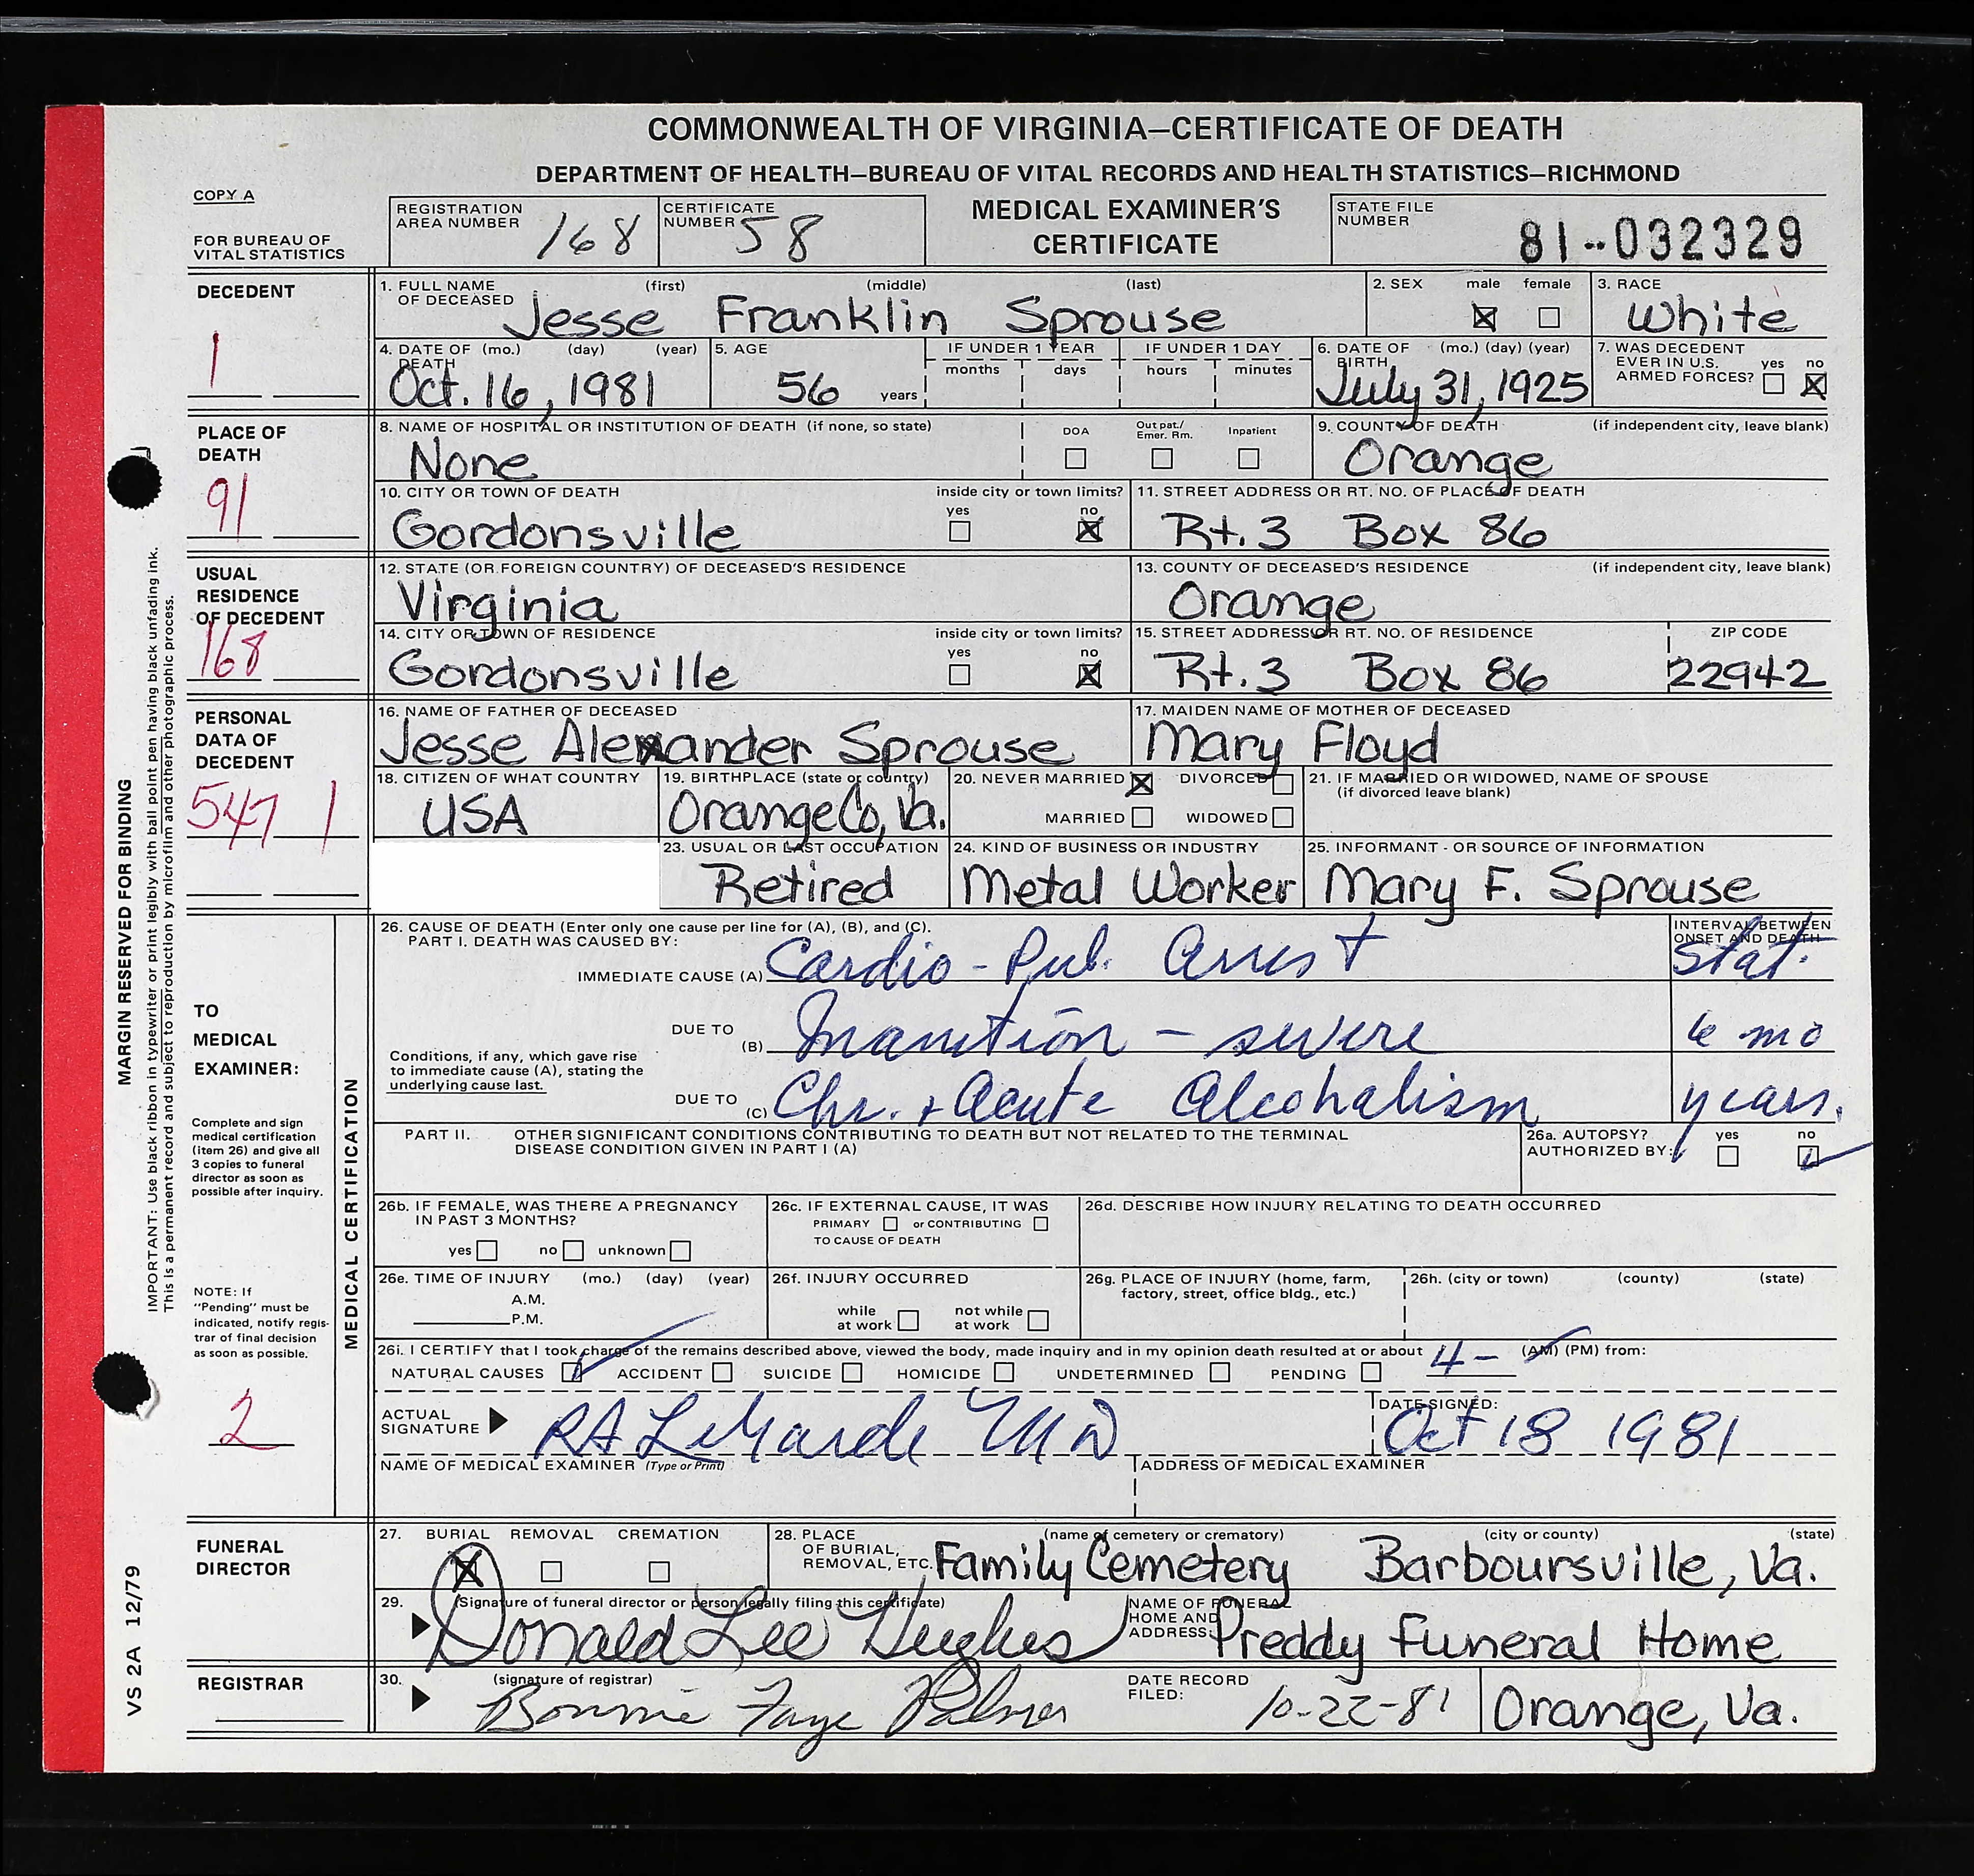 COMMONWEALTH OF VIRGINIA—CERTIFICATE OF DEATH
DEPARTMENT OF HEALTH—BUREAU OF VITAL RECORDS AND HEALTH STATISTICS—RICHMOND
COPY A
FOR BUREAU OF VITAL STATISTICS
REGISTRATION AREA NUMBER 168
CERTIFICATE NUMBER 58
MEDICAL EXAMINER'S CERTIFICATE
STATE FILE NUMBER 81-032329
DECEDENT
1
1. FULL NAME OF DECEASED (first) (middle) (last)
Jesse Franklin Sprouse
2. SEX male female
3. RACE
White
4. DATE OF DEATH (mo.) (day) (year)
Oct. 16, 1981
5. AGE
56 years
IF UNDER 1 YEAR
months days
IF UNDER 1 DAY
hours minutes
6. DATE OF BIRTH (mo.) (day) (year)
July 31, 1925
7. WAS DECEDENT EVER IN U.S. ARMED FORCES? yes no
PLACE OF DEATH
91
8. NAME OF HOSPITAL OR INSTITUTION OF DEATH (if none, so state)
None
DOA
Out pat./ Emer. Rm.
Inpatient
9. COUNTY OF DEATH (if independent city, leave blank)
Orange
10. CITY OR TOWN OF DEATH
Gordonsville
inside city or town limits? yes no
11. STREET ADDRESS OR RT. NO. OF PLACE OF DEATH
Rt. 3 Box 86
USUAL RESIDENCE OF DECEDENT
168
12. STATE (OR FOREIGN COUNTRY) OF DECEASED'S RESIDENCE
Virginia
13. COUNTY OF DECEASED'S RESIDENCE (if independent city, leave blank)
Orange
14. CITY OR TOWN OF RESIDENCE
Gordonsville
inside city or town limits? yes no
15. STREET ADDRESS OR RT. NO. OF RESIDENCE
Rt. 3 Box 86
ZIP CODE
22942
PERSONAL DATA OF DECEDENT
547 1
16. NAME OF FATHER OF DECEASED
Jesse Alexander Sprouse
17. MAIDEN NAME OF MOTHER OF DECEASED
Mary Floyd
18. CITIZEN OF WHAT COUNTRY
USA
19. BIRTHPLACE (state or country)
Orange Co, Va.
20. NEVER MARRIED DIVORCED
MARRIED WIDOWED
21. IF MARRIED OR WIDOWED, NAME OF SPOUSE
(if divorced leave blank)
23. USUAL OR LAST OCCUPATION
Retired
24. KIND OF BUSINESS OR INDUSTRY
Metal Worker
25. INFORMANT - OR SOURCE OF INFORMATION
Mary F. Sprouse
MARGIN RESERVED FOR BINDING
IMPORTANT: Use black ribbon in typewriter or print legibly with ball point pen having black unfading ink.
This is a permanent record and subject to reproduction by microfilm and other photographic process.
VS 2A 12/79
TO MEDICAL EXAMINER:
Complete and sign medical certification (item 26) and give all 3 copies to funeral director as soon as possible after inquiry.
NOTE: If "Pending" must be indicated, notify registrar of final decision as soon as possible.
2
MEDICAL CERTIFICATION
26. CAUSE OF DEATH (Enter only one cause per line for (A), (B), and (C).
PART I. DEATH WAS CAUSED BY:
INTERVAL BETWEEN ONSET AND DEATH
IMMEDIATE CAUSE (A) Cardio-Pul. Arrest
Stat.
DUE TO (B) Inanition - severe
6 mo
Conditions, if any, which gave rise to immediate cause (A), stating the underlying cause last.
DUE TO (C) Chr. + Acute Alcohalism
years.
PART II. OTHER SIGNIFICANT CONDITIONS CONTRIBUTING TO DEATH BUT NOT RELATED TO THE TERMINAL DISEASE CONDITION GIVEN IN PART I (A)
26a. AUTOPSY? AUTHORIZED BY: yes no
26b. IF FEMALE, WAS THERE A PREGNANCY IN PAST 3 MONTHS?
yes no unknown
26c. IF EXTERNAL CAUSE, IT WAS
PRIMARY or CONTRIBUTING
TO CAUSE OF DEATH
26d. DESCRIBE HOW INJURY RELATING TO DEATH OCCURRED
26e. TIME OF INJURY (mo.) (day) (year)
A.M.
P.M.
26f. INJURY OCCURRED
while at work not while at work
26g. PLACE OF INJURY (home, farm, factory, street, office bldg., etc.)
26h. (city or town) (county) (state)
26i. I CERTIFY that I took charge of the remains described above, viewed the body, made inquiry and in my opinion death resulted at or about 4- (AM) (PM) from:
NATURAL CAUSES ACCIDENT SUICIDE HOMICIDE UNDETERMINED PENDING
ACTUAL SIGNATURE
MD
DATE SIGNED:
Oct 18 1981
NAME OF MEDICAL EXAMINER (Type or Print)
ADDRESS OF MEDICAL EXAMINER
FUNERAL DIRECTOR
27. BURIAL REMOVAL CREMATION
28. PLACE OF BURIAL, REMOVAL, ETC. (name of cemetery or crematory) (city or county) (state)
Family Cemetery Barboursville, Va.
29. (Signature of funeral director or person legally filing this certificate)
Donald Lee Hughes
NAME OF FUNERAL HOME AND ADDRESS:
Preddy Funeral Home
Orange, Va.
REGISTRAR
30. (signature of registrar)
Bonnie Faye Palmer
DATE RECORD FILED:
10-22-81